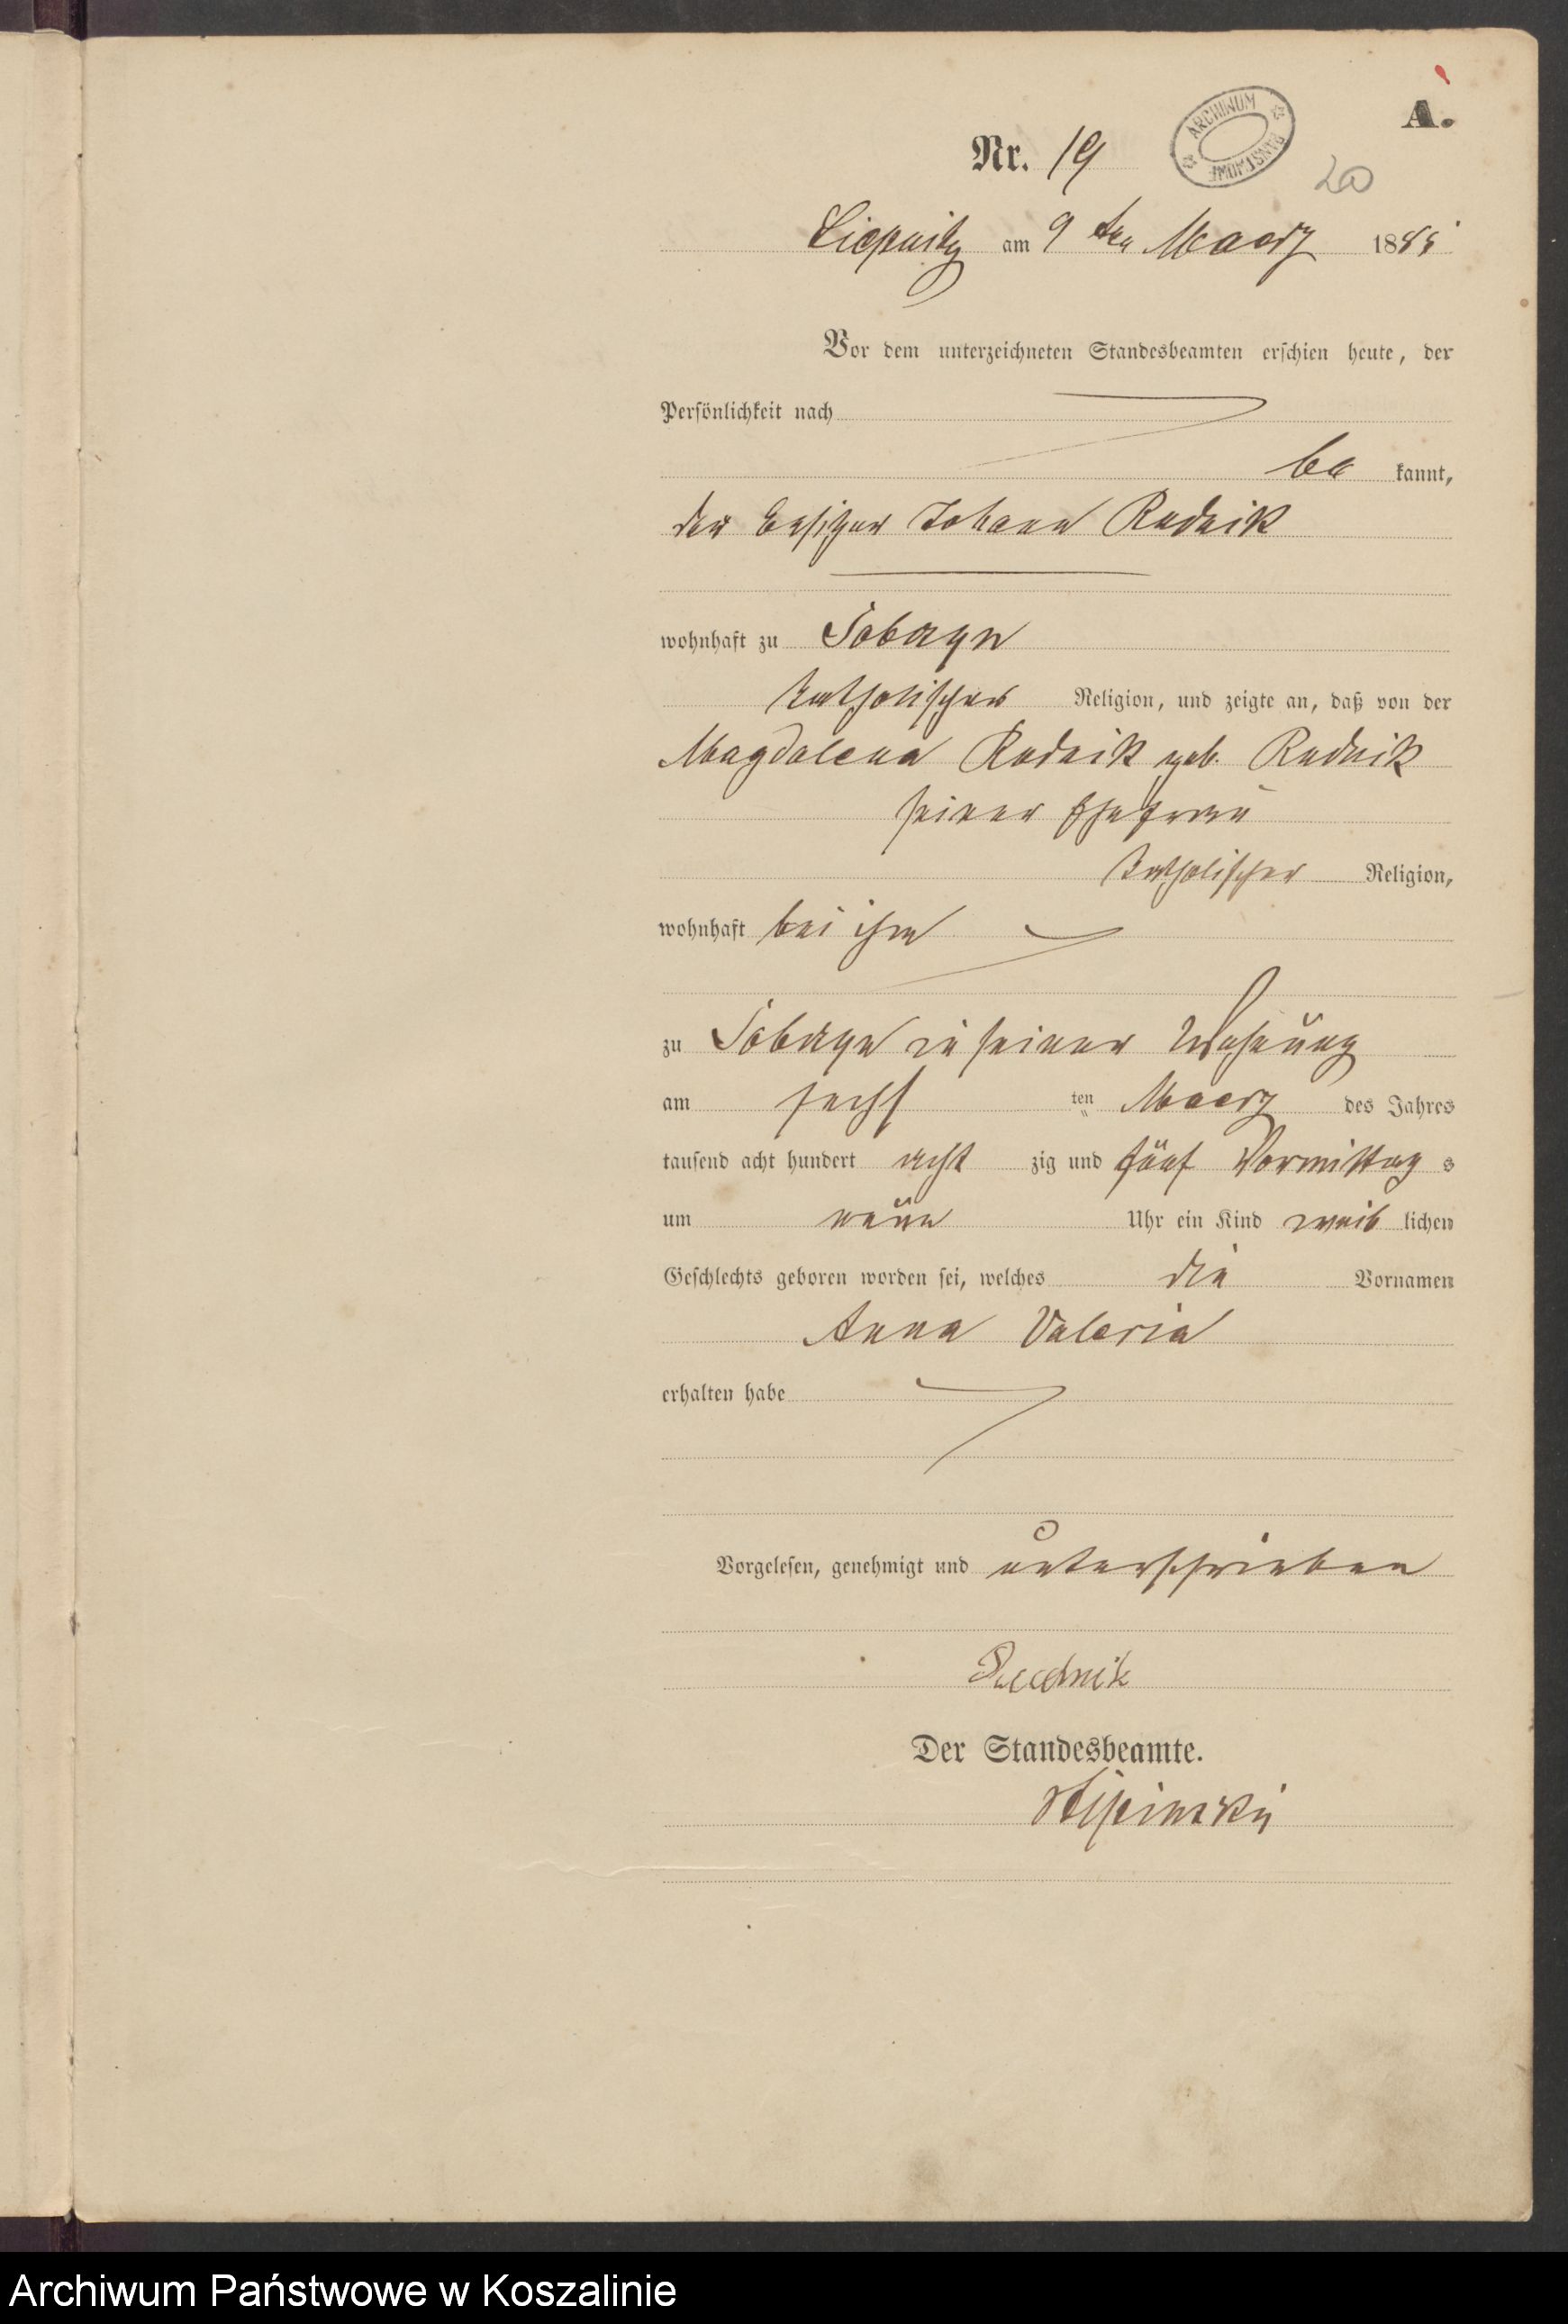 A.
Nr. 19
ARCHIWUM PAŃSTWOWE
20
Liepnitz am 9 ten Maerz 1885
Vor dem unterzeichneten Standesbeamten erschien heute, der
Persönlichkeit nach
be kannt,
der Besitzer Johann Rudnik
wohnhaft zu
katholischer Religion, und zeigte an, daß von der
Magdalena Rudnik geb. Rudnik
seiner Ehefrau
katholischer Religion,
wohnhaft bei ihm
zu in seiner Wohnung
am sechs ten Maerz des Jahres
tausend acht hundert acht zig und fünf Vormittag s
um neun Uhr ein Kind weib lichen
Geschlechts geboren worden sei, welches die Vornamen
Anna Valeria
erhalten habe
Vorgelesen, genehmigt und unterschrieben
Rudnik
Der Standesbeamte.
Archiwum Państwowe w Koszalinie